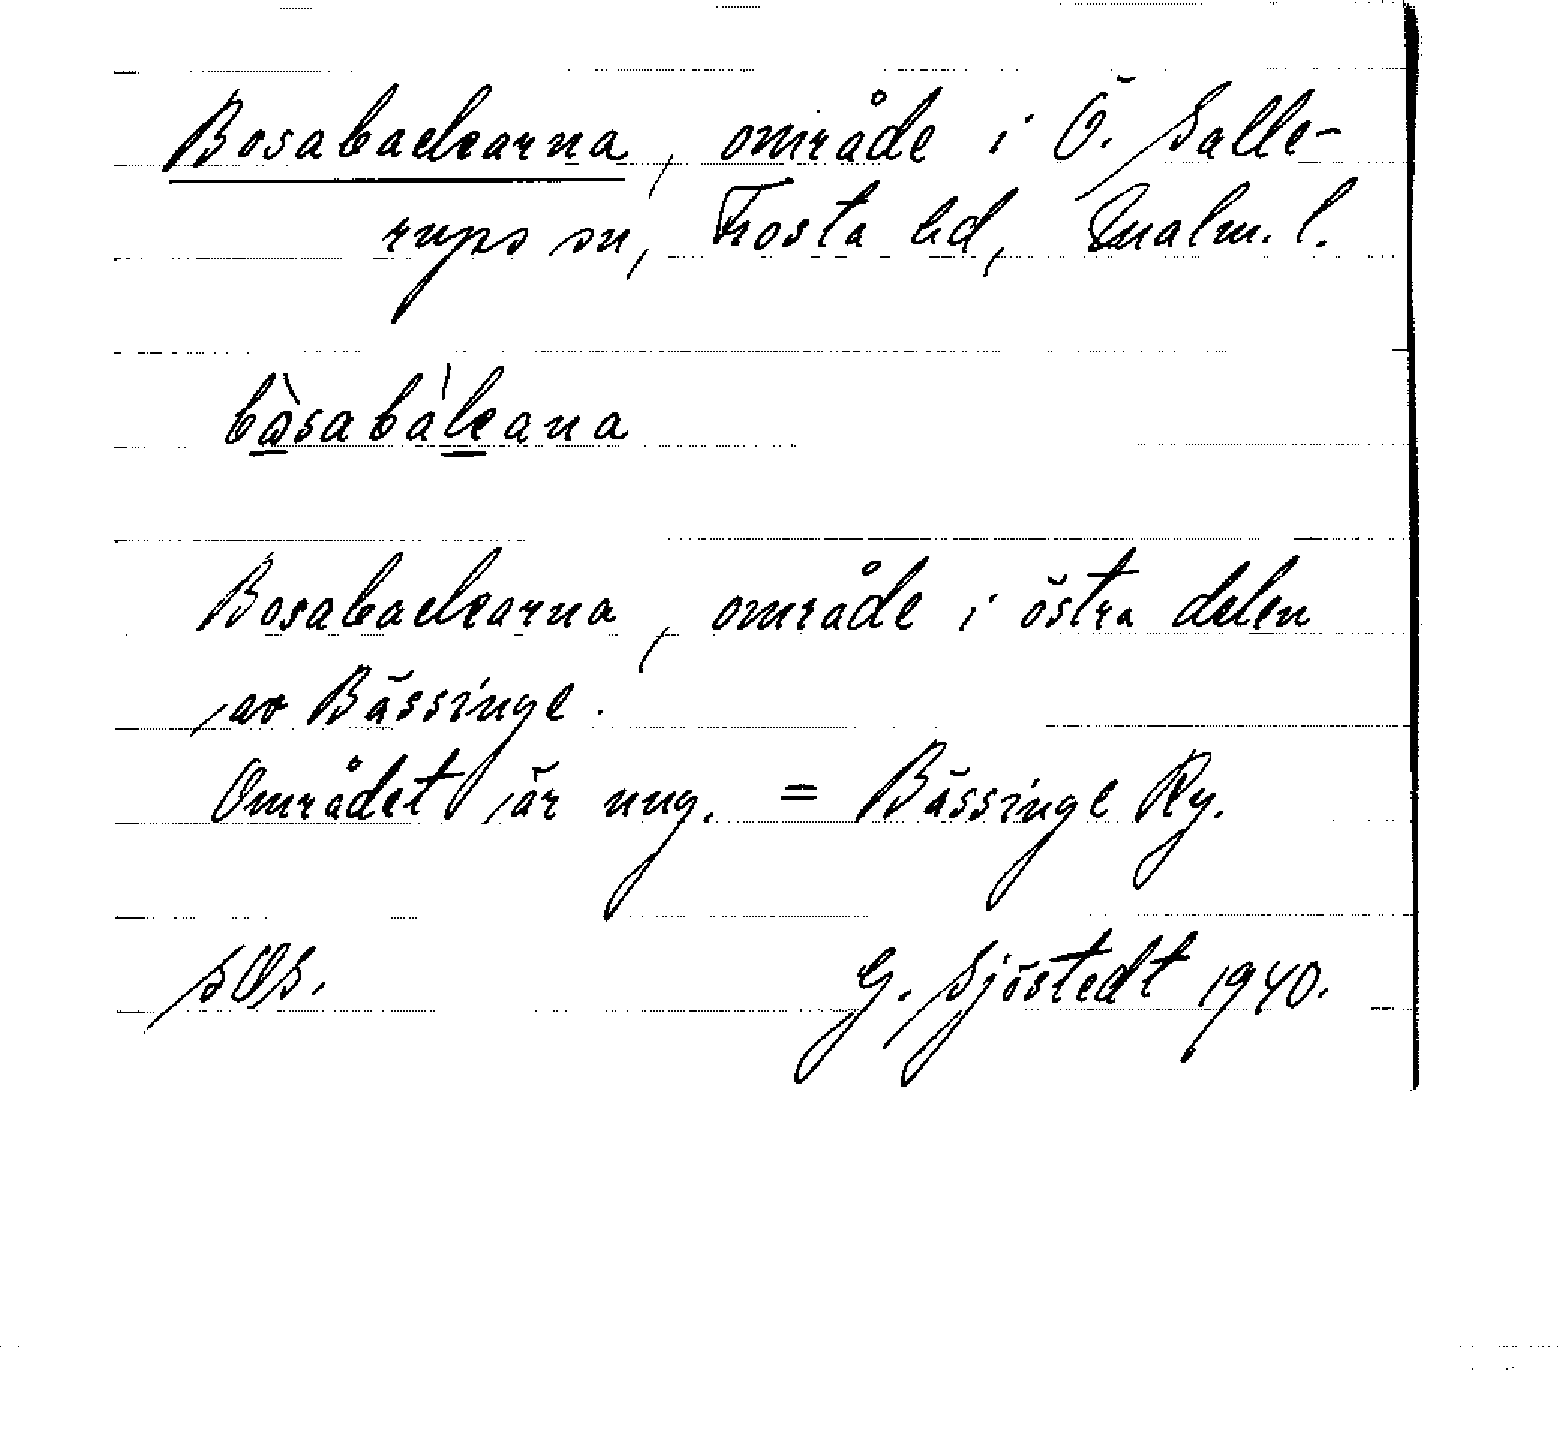 Bosabackarna, område i Ö. Salle-
rups sn, Frosta hd, Malm. l.
bàsabákana
Bosabackarna, område i östra delen
av Bässinge.
Området är ung. = Bässinge Ry.
G. Sjöstedt 1940.